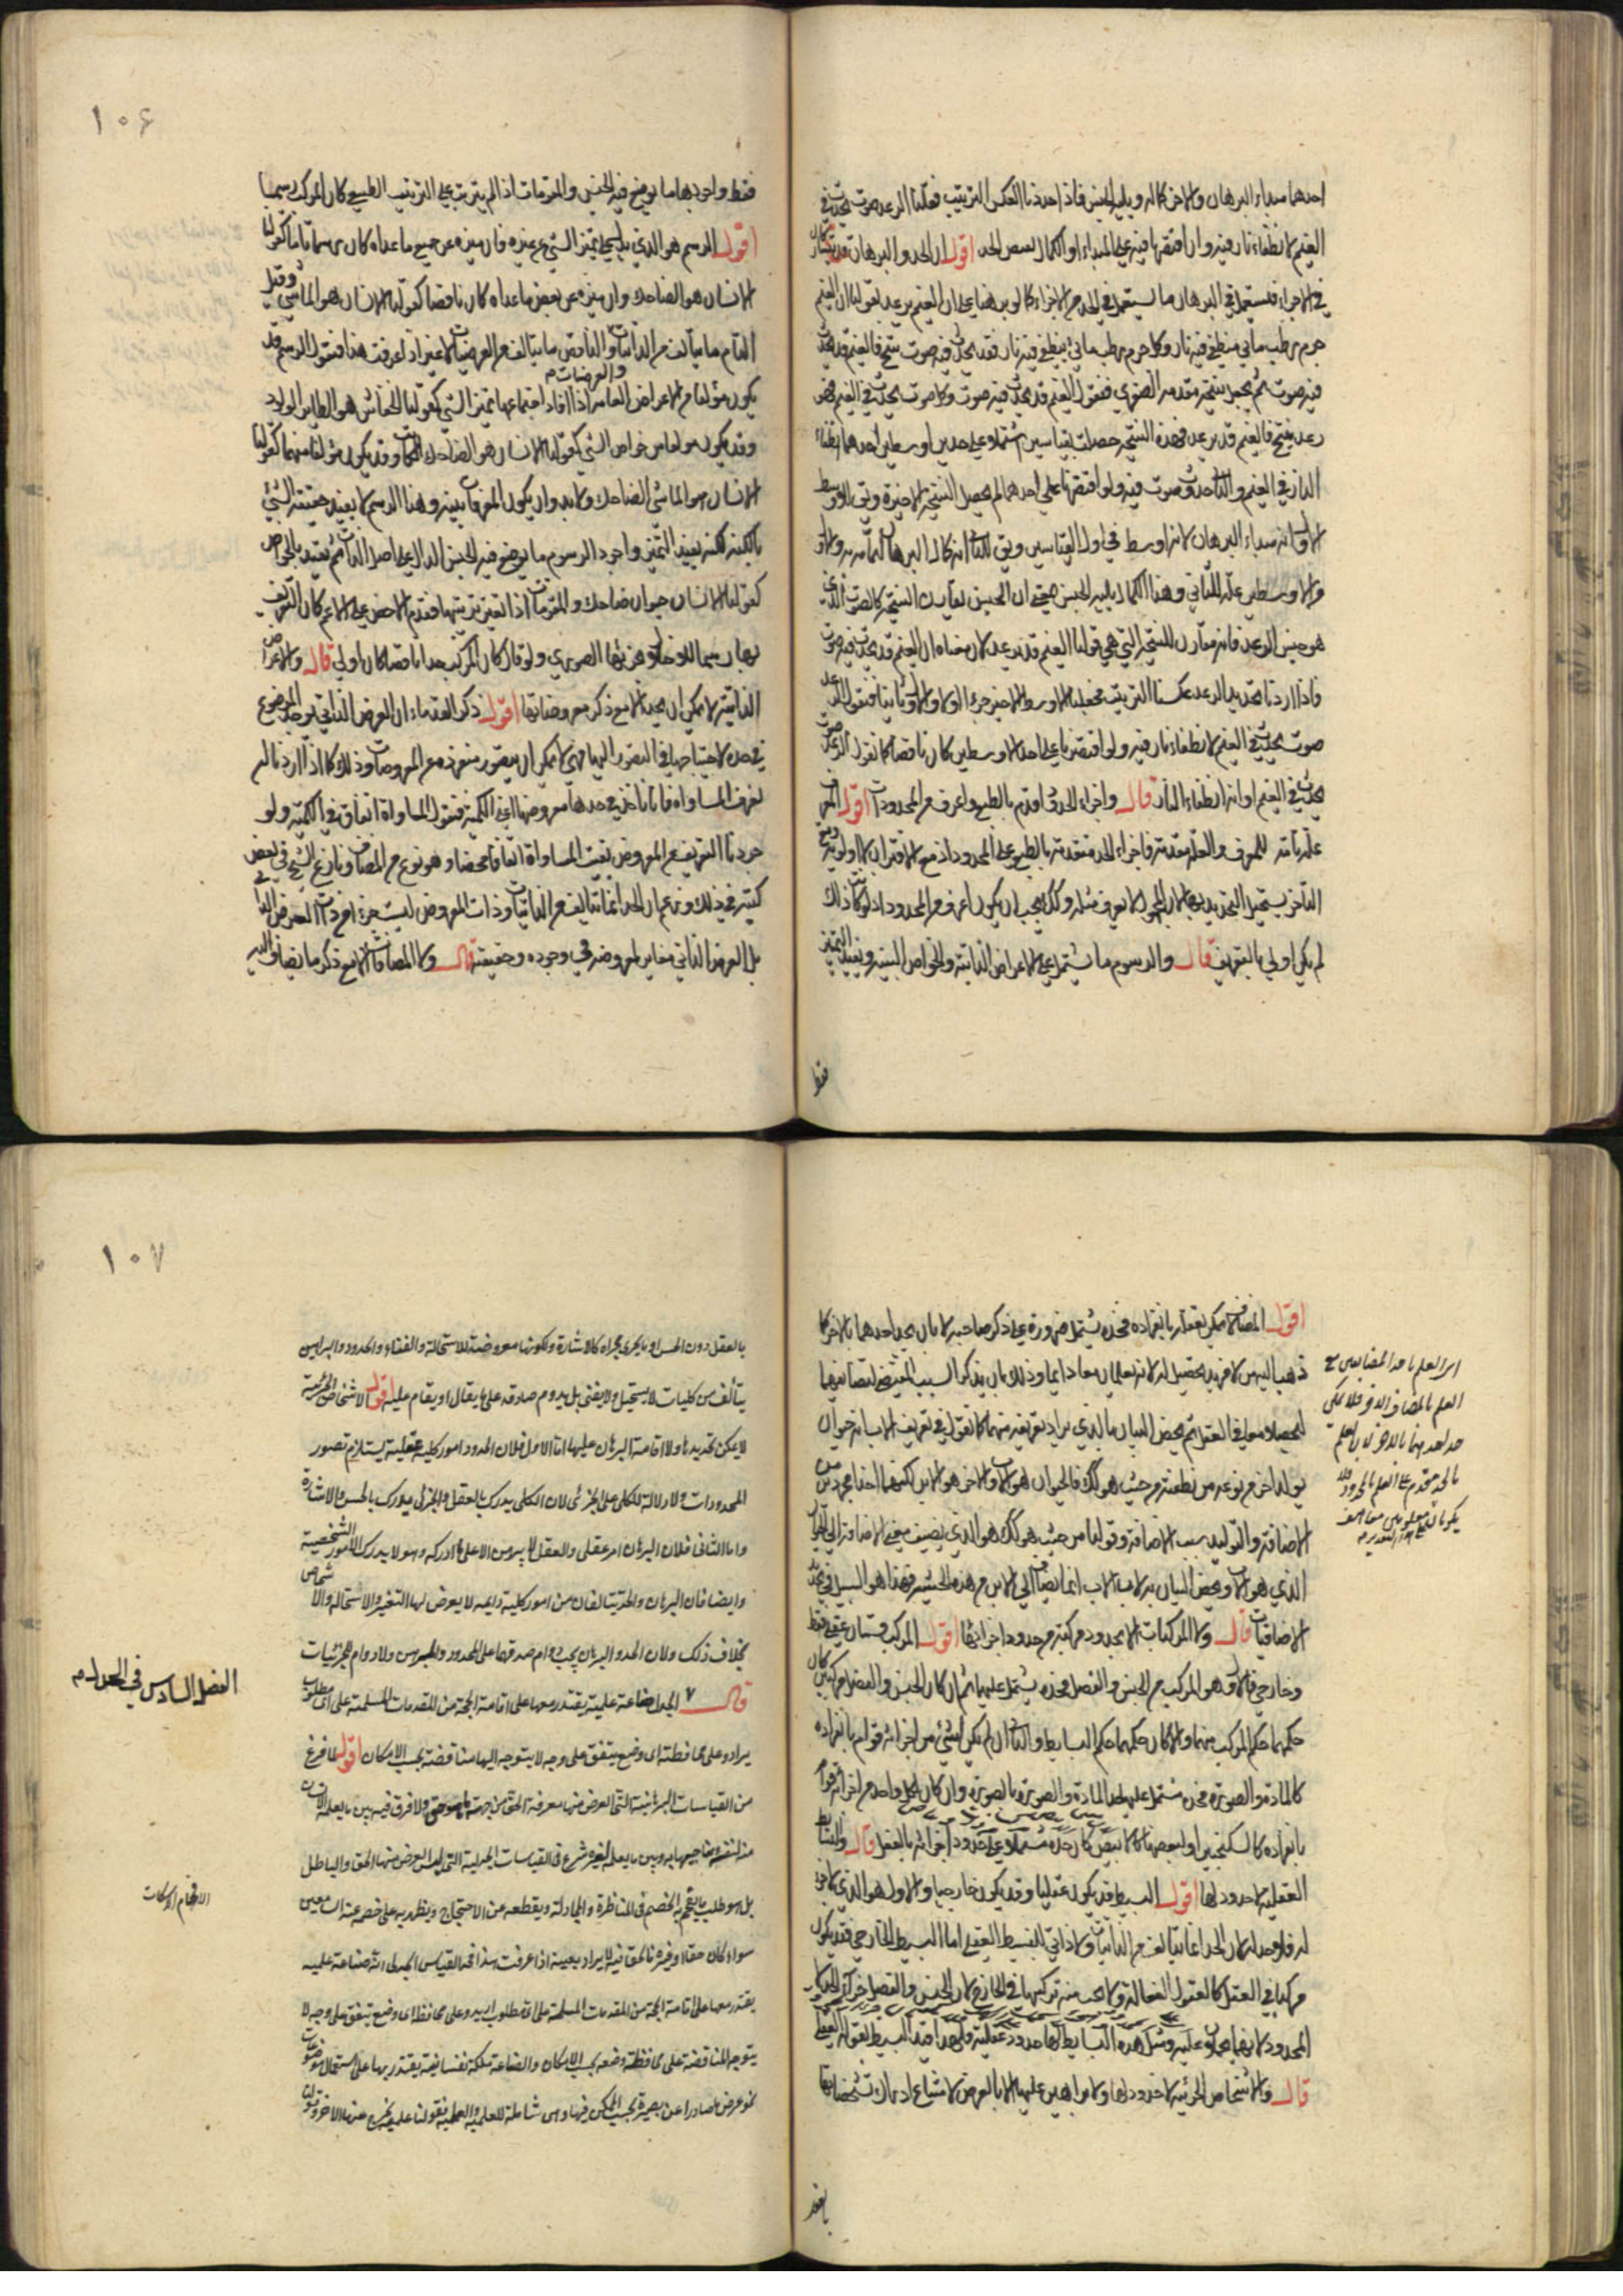 احدهما مبداء البرهان والاخر كماله ويليه الجنس فاذا حددنا انعكس الترتيب فقلنا الرعد صوت يحدث في
الغيم لانطفاء نار فيه وان اقتصرنا فيه على المبداء او الكمال نقص الحد اقول ان الحد والبرهان قد يتشاركان
في الاجزاء فيستعمل في البرهان ما يستعمل في الحد من الاجزاء كما لو برهنا على ان الغيم يرعد بقولنا ان الغيم
جرم رطب مائي ينطفئ فيه نار وكل جرم رطب مائي ينطفئ فيه نار فقد يحدث فيه صوت ينتج فالغيم قد يحدث
فيه صوت ثم يجعل النتيجة مقدمة الصغرى فنقول الغيم قد يحدث فيه صوت وكل صوت يحدث في الغيم فهو
رعد ينتج فالغيم قد يرعد فهذه النتيجة حصلت بقياسين اشتملا على حدين اوسطين احدهما انطفاء
النار في الغيم والثاني حدوث صوت فيه ولو اقتصرنا على احدهما لم يحصل النتيجة الاخيرة ويقال للاوسط
الاول انه مبداء البرهان لانه اوسط في اول القياسين ويقال للثاني انه كمال البرهان لتمامه به والاول
من الاوسطين علة للثاني وهذا الكمال يليه الجنس
هو جنس الرعد فانه مقارن للنتيجة التي هي قولنا الغيم قد يرعد لان معناه ان الغيم قد يحدث فيه صوت
فاذا اردنا تحديد الرعد عكسنا الترتيب فجعلنا الاوسط الاخير جزءا اولا والاول ثانيا فنقول الرعد
صوت يحدث في الغيم لانطفاء نار فيه ولو اقتصرنا على احد الاوسطين كان ناقصا كما نقول الرعد صوت
يحدث في الغيم او انه انطفاء النار قال واجزاء الحد اقدم بالطبع واعرف من المحدودات اقول المعرف
علة تامة للمعرف والعلة متقدمة فاجزاء الحد متقدمة بالطبع على المحدود اذ مع الاقتران لا اولوية ومع
التاخر يستحيل التحديد بها لان المجهول لا يعرف مثله وكذلك يجب ان يكون اعرف من المحدود اذ لو كانت كذلك
لم يكن اولى بالتعريف قال والرسوم ما يشتمل على الاعراض الذاتية والخواص البينة ويفيد التميز
فقط
١٠۶
فقط واجودها ما يوضع فيه الجنس والمقومات اذا لم يترتب على الترتيب الطبيعي كان المركب رسميا
اقول الرسم هو الذي يطلب تميز الشيء عن غيره فان ميزه عن جميع ما عداه كان رسما تاما كقولنا
الانسان هو الضاحك وان ميزه عن بعض ما عداه كان ناقصا كقولنا الانسان هو الماشي وقيل
التام ما يتالف من الذاتيات والناقص ما يتالف من العرضيات لا غير اذا عرفت هذا فنقول الرسم قد
والعرضيات م
يكون مؤلفا من الاعراض العامة اذا افاد اجتماعها تميز الشيء كقولنا الخفاش هو الطاير الولود
وقد يكون مؤلفا من خواص الشيء كقولنا الانسان هو الضاحك الكاتب وقد يكون مؤلفا منهما كقولنا
الانسان هو الماشي الضاحك ولا بد وان يكون المعرفات بينة وهذا الرسم لا يفيد حقيقة الشيء
بالكنه لكنه يفيد التميز واجود الرسوم ما يوضع فيه الجنس الدال على اصل الذات ثم يقيد بالخواص
كقولنا الانسان حيوان ضاحك والمقومات اذا تغير ترتيبها فقدم الاخص على الاعم كان التعريف
بها رسميا للاخلال بجزئها الصوري ولو قال كان المركب حدا ناقصا كان اولى قال والاعراض
الذاتية لا يمكن ان يحد الا مع ذكر معروضاتها اقول ذكر القدماء ان العرض الذاتي يوخذ الموضوع
في حده لاحتياجها في التصور اليها فهي لا يمكن ان يتصور منفردة عن المعروضات وذلك كما اذا اردنا ان
نعرف المساواة فانا ناخذ في حدها معروضها اعني الكمية فنقول المساواة اتفاق في الكمية ولو
جردنا التعريف عن المعروض بقيت المساواة اتفاقا محضا وهو نوع من المضاف ونازع الشيخ في بعض
كتبه في ذلك وزعم ان الحد انما يتالف من الذاتيات وذات المعروض ليست جزءا من ذات العرض الذاتي
بل العرض الذاتي مغاير لمعروضه في وجوده وحقيقته قال ولا المضافات الا مع ذكر ما يضاف اليه
اقول المضاف لا يمكن تعقله بانفراده فحده يشتمل ضرورة على ذكر صاحبه لا بان يحد احدهما بالاخر كما
ذهب اليه من لا مزيد تحصيل له لانه يعلمان معا دايما وذلك بان يذكر السبب المقتضي لتضايفهما
ليحصلا معا في العقل ثم يخص البيان بالذي يراد تعريفه منهما كما نقول في تعريف الاب انه حيوان
يولد اخر من نوعه من نطفته من حيث هو كذلك فالحيوان هو الاب والاخر هو الابن لكنهما اخذا مجردين من
الاضافة والتوليد سبب الاضافة وقولنا من حيث هو كذلك هو الذي يضيف معنى الاضافة الى الحيوان
الذي هو الاب ويخص البيان به لان الاب انما يضاف الى الابن من هذه الحيثية فهذا هو السبيل في تحديد
الاضافيات قال ولا المركبات الا بحدود مركبة من حدود اجزائها اقول المركب قسمان عقلي فقط
وخارجي فالاول هو المركب من الجنس والفصل فحده يشتمل عليهما ثم ان كان الجنس والفصل مركبين كان
حكمهما حكم المركب منهما والا كان حكمهما حكم البسايط والثاني ان لم يكن لشيء من اجزائه قوام بانفراده
كالمادة والصورة فحده مشتمل على حد المادة والصورة بالصورة وان كان لكل واحد من اجزائه قوام
بانفراده كالسكنجبين او لبعضها كالابيض كان حده مشتملا على حدود اجزائه بالفعل قال والبسايط
العقلية لا حدود لها اقول البسيط قد يكون عقليا وقد يكون خارجيا والاول هو الذي لا جزء
له فلا حد له لان الحد انما يتالف من الذاتيات ولا ذاتي للبسيط العقلي اما البسيط الخارجي فقد يكون
مركبا في العقل كالعقول الفعالة ولا يجب منه تركيبها في الخارج لان الجنس والفصل
المحدود لانهما يحملان عليه ومثل هذه البسايط لها حدود عقلية ولهذا قيد البسيط بقوله العقلي
قال والاشخاص الجزئية لا حدود لها ولا براهين عليها الا بالعرض لامتناع ادراك تشخصاتها
العلم باحد المضايفين مع
العلم بالمضاف الاخر فلا يمكن
حد احدهما بالاخر لان العلم
بالحد مقدم على العلم بالمحدود فلا
بالعقل
١٠٧
بالعقل دون الحس او ما يجري مجراه كالاشارة ولكونها معروضة للاستحالة والفناء والحدود والبراهين
يتالف من كليات لا يستحيل ولا يفنى بل يدوم صادقة على ما يقال او يقام عليه اقول الاشخاص الجزئية
لا يمكن تحديدها ولا اقامة البرهان عليها اما الاول فلان الحدود امور كلية عقلية يستلزم تصور
المحدودات ولا دلالة للكلي على الجزئي لان الكلي يدرك بالعقل والجزئي يدرك بالحس والاشارة
واما الثاني فلان البرهان امر عقلي والعقل لا يبرهن الا على ما ادركه وهو لا يدرك الامور الشخصية
وايضا فان البرهان والحد يتالفان من امور كلية دايمة لا يعرض لها التغير والاستحالة والاشخاص
بخلاف ذلك ولان الحد والبرهان يجب دوام صدقها على المحدود والمبرهن ولا دوام للجزئيات
قال ٧ الجدل صناعة علمية يقتدر معها على اقامة الحجة من المقدمات المسلمة على اي مطلوب
يراد وعلى محافظة اي وضع يتفق على وجه لا يتوجه اليها مناقضة بحسب الامكان اقول لما فرغ
من القياسات البرهانية التي الغرض منها معرفة الحق من جهة ما هو حق ولا فرق فيه بين ما يعلمه الانسان
من نفسه ويناجيها به وبين ما يعلمه لغيره شرع في القياسات الجدلية التي ليس الغرض منها الحق والباطل
بل هو طلب ما يفحم به الخصم في المناظرة والمجادلة ويقطعه عن الاحتجاج ويظهر به على خصمه عند السامعين
سواء كان حقا او غيره فالحق فيه لا يراد بعينه اذا عرفت هذا فحد القياس الجدلي انه صناعة علمية
يقتدر معها على اقامة الحجة من المقدمات المسلمة على اي مطلوب اريد وعلى محافظة اي وضع يتفق على وجه لا
يتوجه المناقضة على محافظة وضعه بحسب الامكان والصناعة ملكة نفسانية يقتدر بها على استعمال موضوعات
نحو غرض ما صادرا عن بصيرة بحسب الممكن فيها وهي شاملة للعلمية والعملية فقولنا علمية يخرج عنه الاخر وقولنا
الفصل السادس في الجدل م
الافحام الاسكات